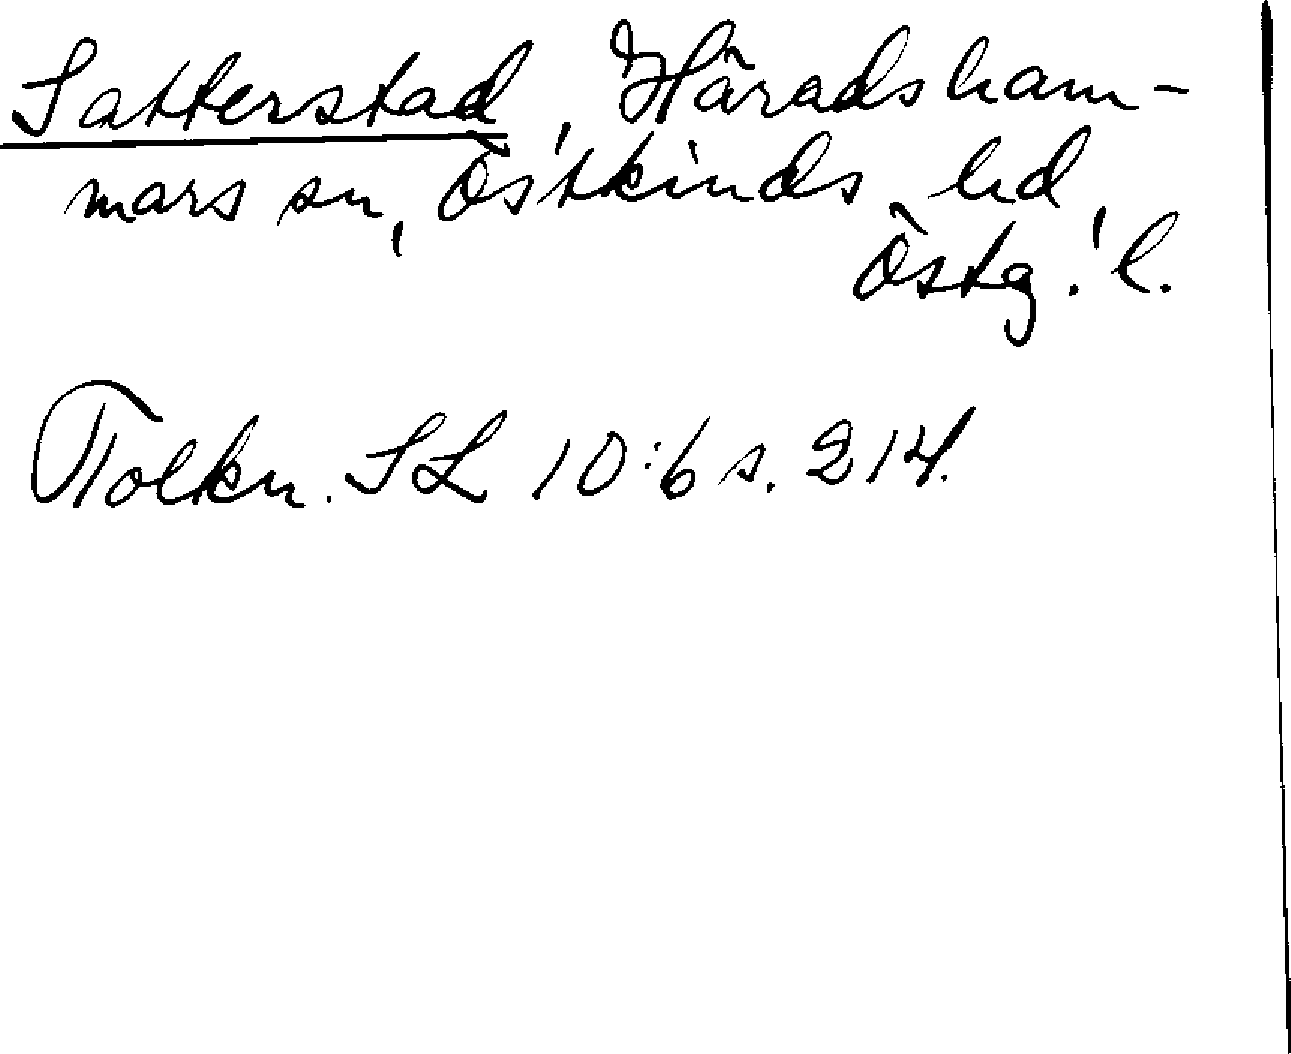 Satterstad, Häradsham-
mars sn, Östkinds hd,
Östg. l.
Tolkn. SL 10:6 s. 214.